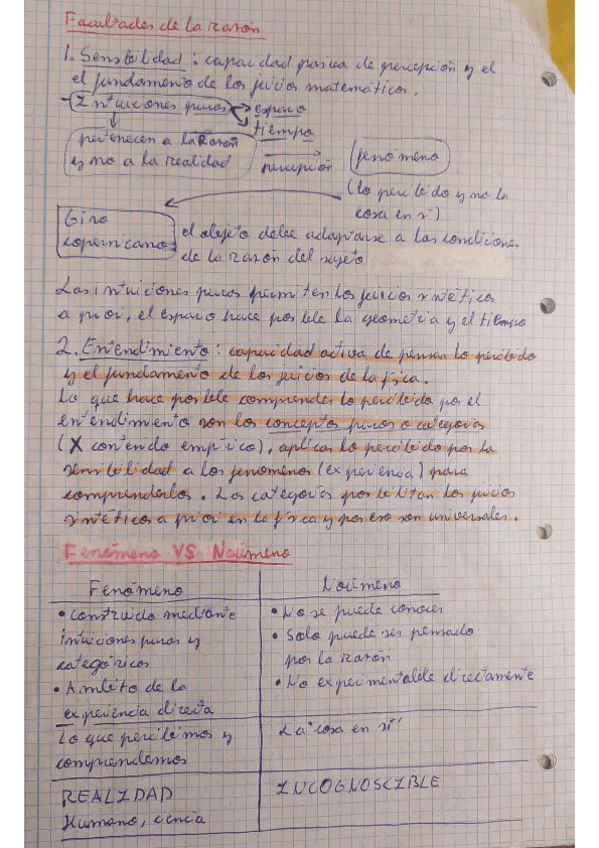 Facultades de la razón
1. Sensibilidad : capacidad pasiva de percepción y el
el fundamento de los juicios matemáticos.
- Intuiciones puras espacio
tiempo
pertenecen a la Razón
y no a la realidad
percepción
fenómeno
(lo percibido y no la
cosa en sí)
Giro
copernicano:
el objeto debe adaptarse a las condiciones
de la razón del sujeto
Las intuiciones puras permiten los juicios sintéticos
a priori, el espacio hace posible la geometría y el tiempo
2. Entendimiento : capacidad activa de pensar lo percibido
y el fundamento de los juicios de la física.
Lo que hace posible comprender lo percibido por el
entendimiento son los conceptos puros o categorías
(X contenido empírico), aplicar lo percibido por la
sensibilidad a los fenómenos (experiencia) para
comprenderlos. Las categorías posibilitan los juicios
sintéticos a priori en la física y por eso son universales.
Fenómeno VS Noúmeno
Fenómeno Noúmeno
• Construido mediante
intuiciones puras y
categóricos
• Ámbito de la
experiencia directa
• No se puede conocer
• Solo puede ser pensado
por la razón
• No experimentable directamente
Lo que percibimos y
comprendemos
La "cosa en sí"
REALIDAD
Humano, ciencia
INCOGNOSCIBLE